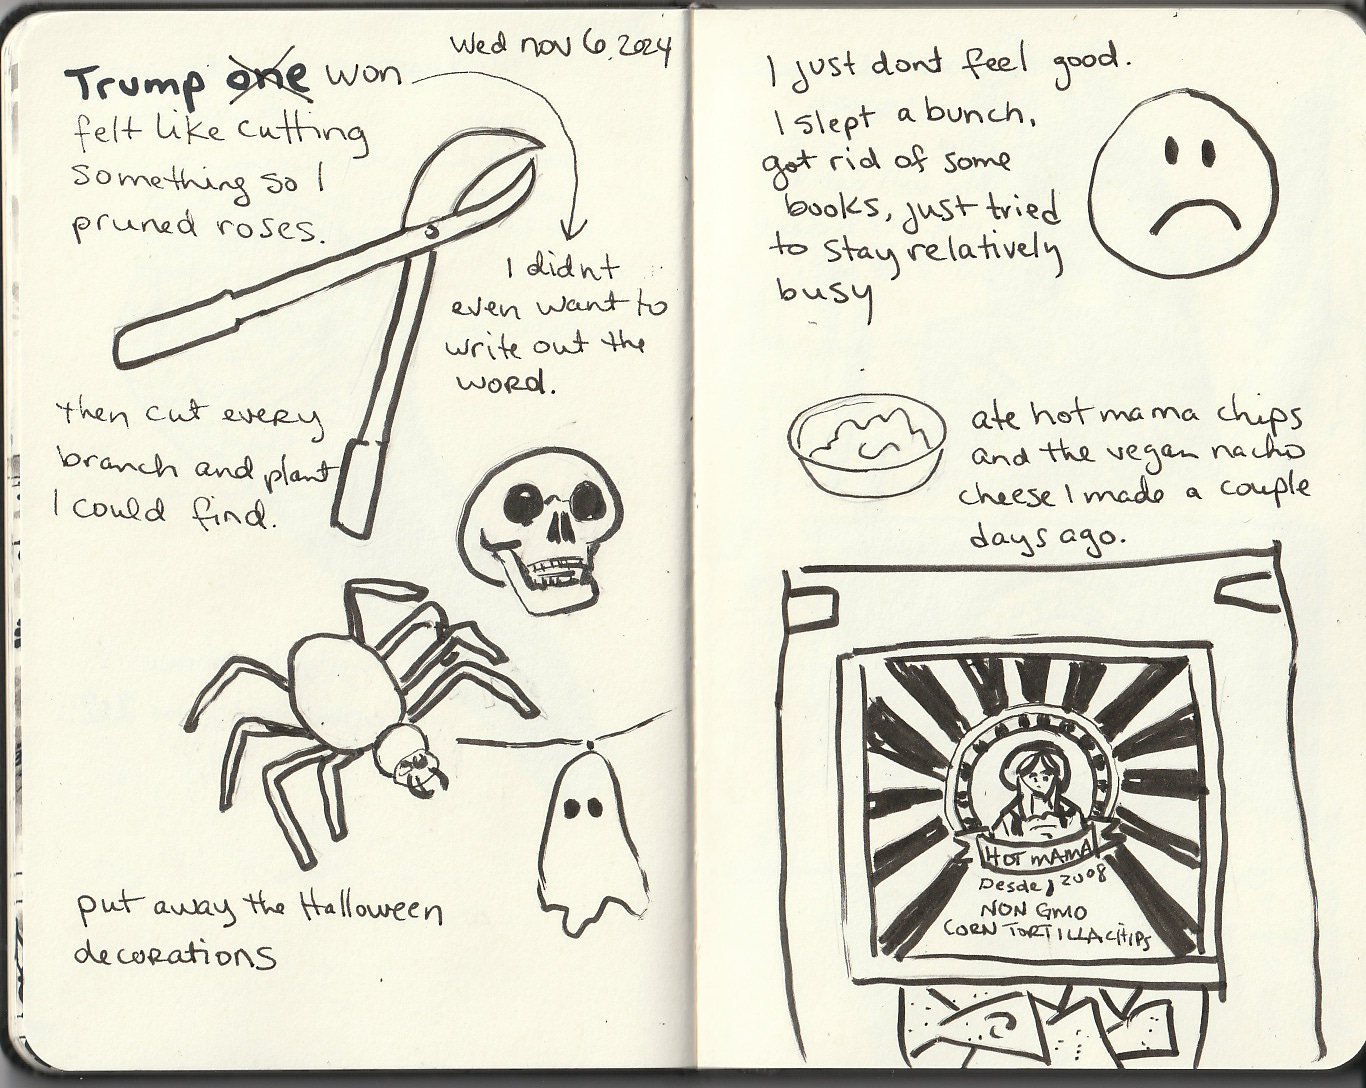 Wed nov 6, 2024
Trump one won
felt like cutting
something so I
pruned roses.
I didnt
even want to
write out the
word.
then cut every
branch and plant
I could find.
put away the Halloween
decorations
I just dont feel good.
I slept a bunch,
got rid of some
books, just tried
to stay relatively
busy
ate hot mama chips
and the vegan nacho
cheese I made a couple
days ago.
HOT MAMA
Desde 2008
NON GMO
CORN TORTILLA CHIPS